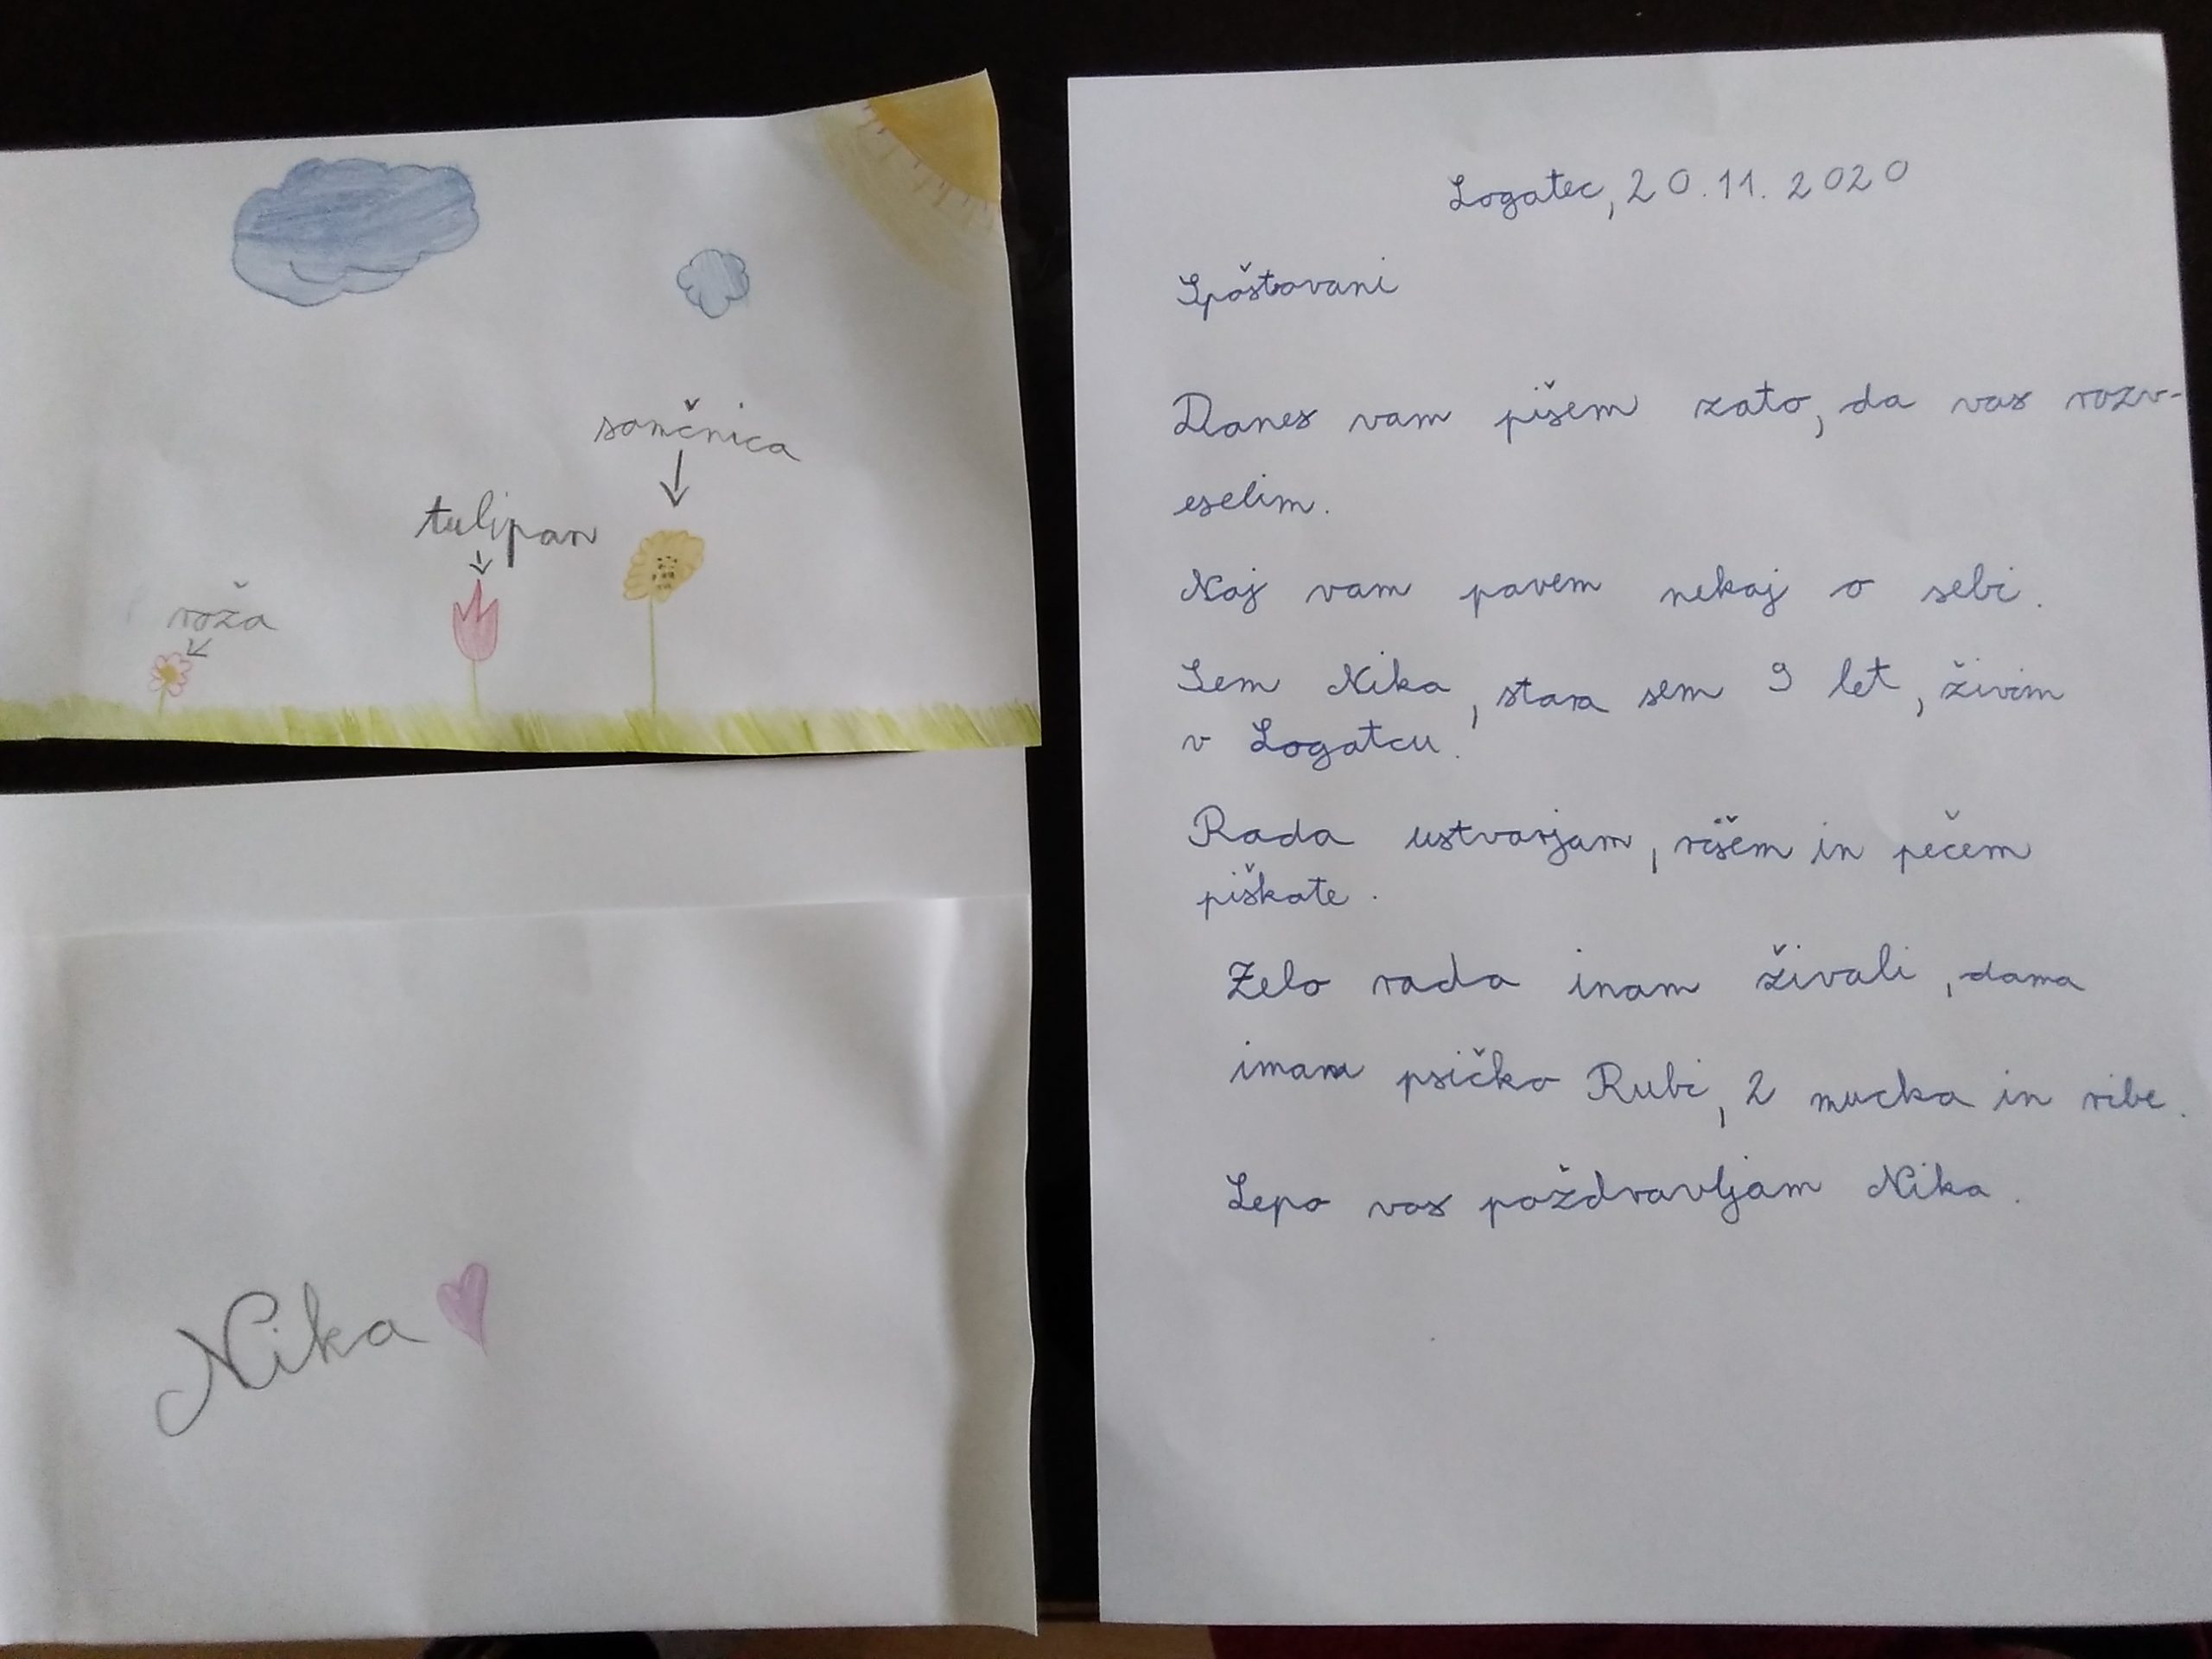 sončnica
tulipan
roža
Nika
Logatec, 20.11.2020
Spoštovani
Danes vam pišem zato, da vas razv-
eselim.
Naj vam povem nekaj o sebi.
Sem Nika, stara sem 9 let, živim
v Logatcu.
Rada ustvarjam, rišem in pečem
piškate.
Zelo rada imam živali, doma
imam psičko Rubi, 2 mucka in ribe.
Lepo vas poždravljam Nika.